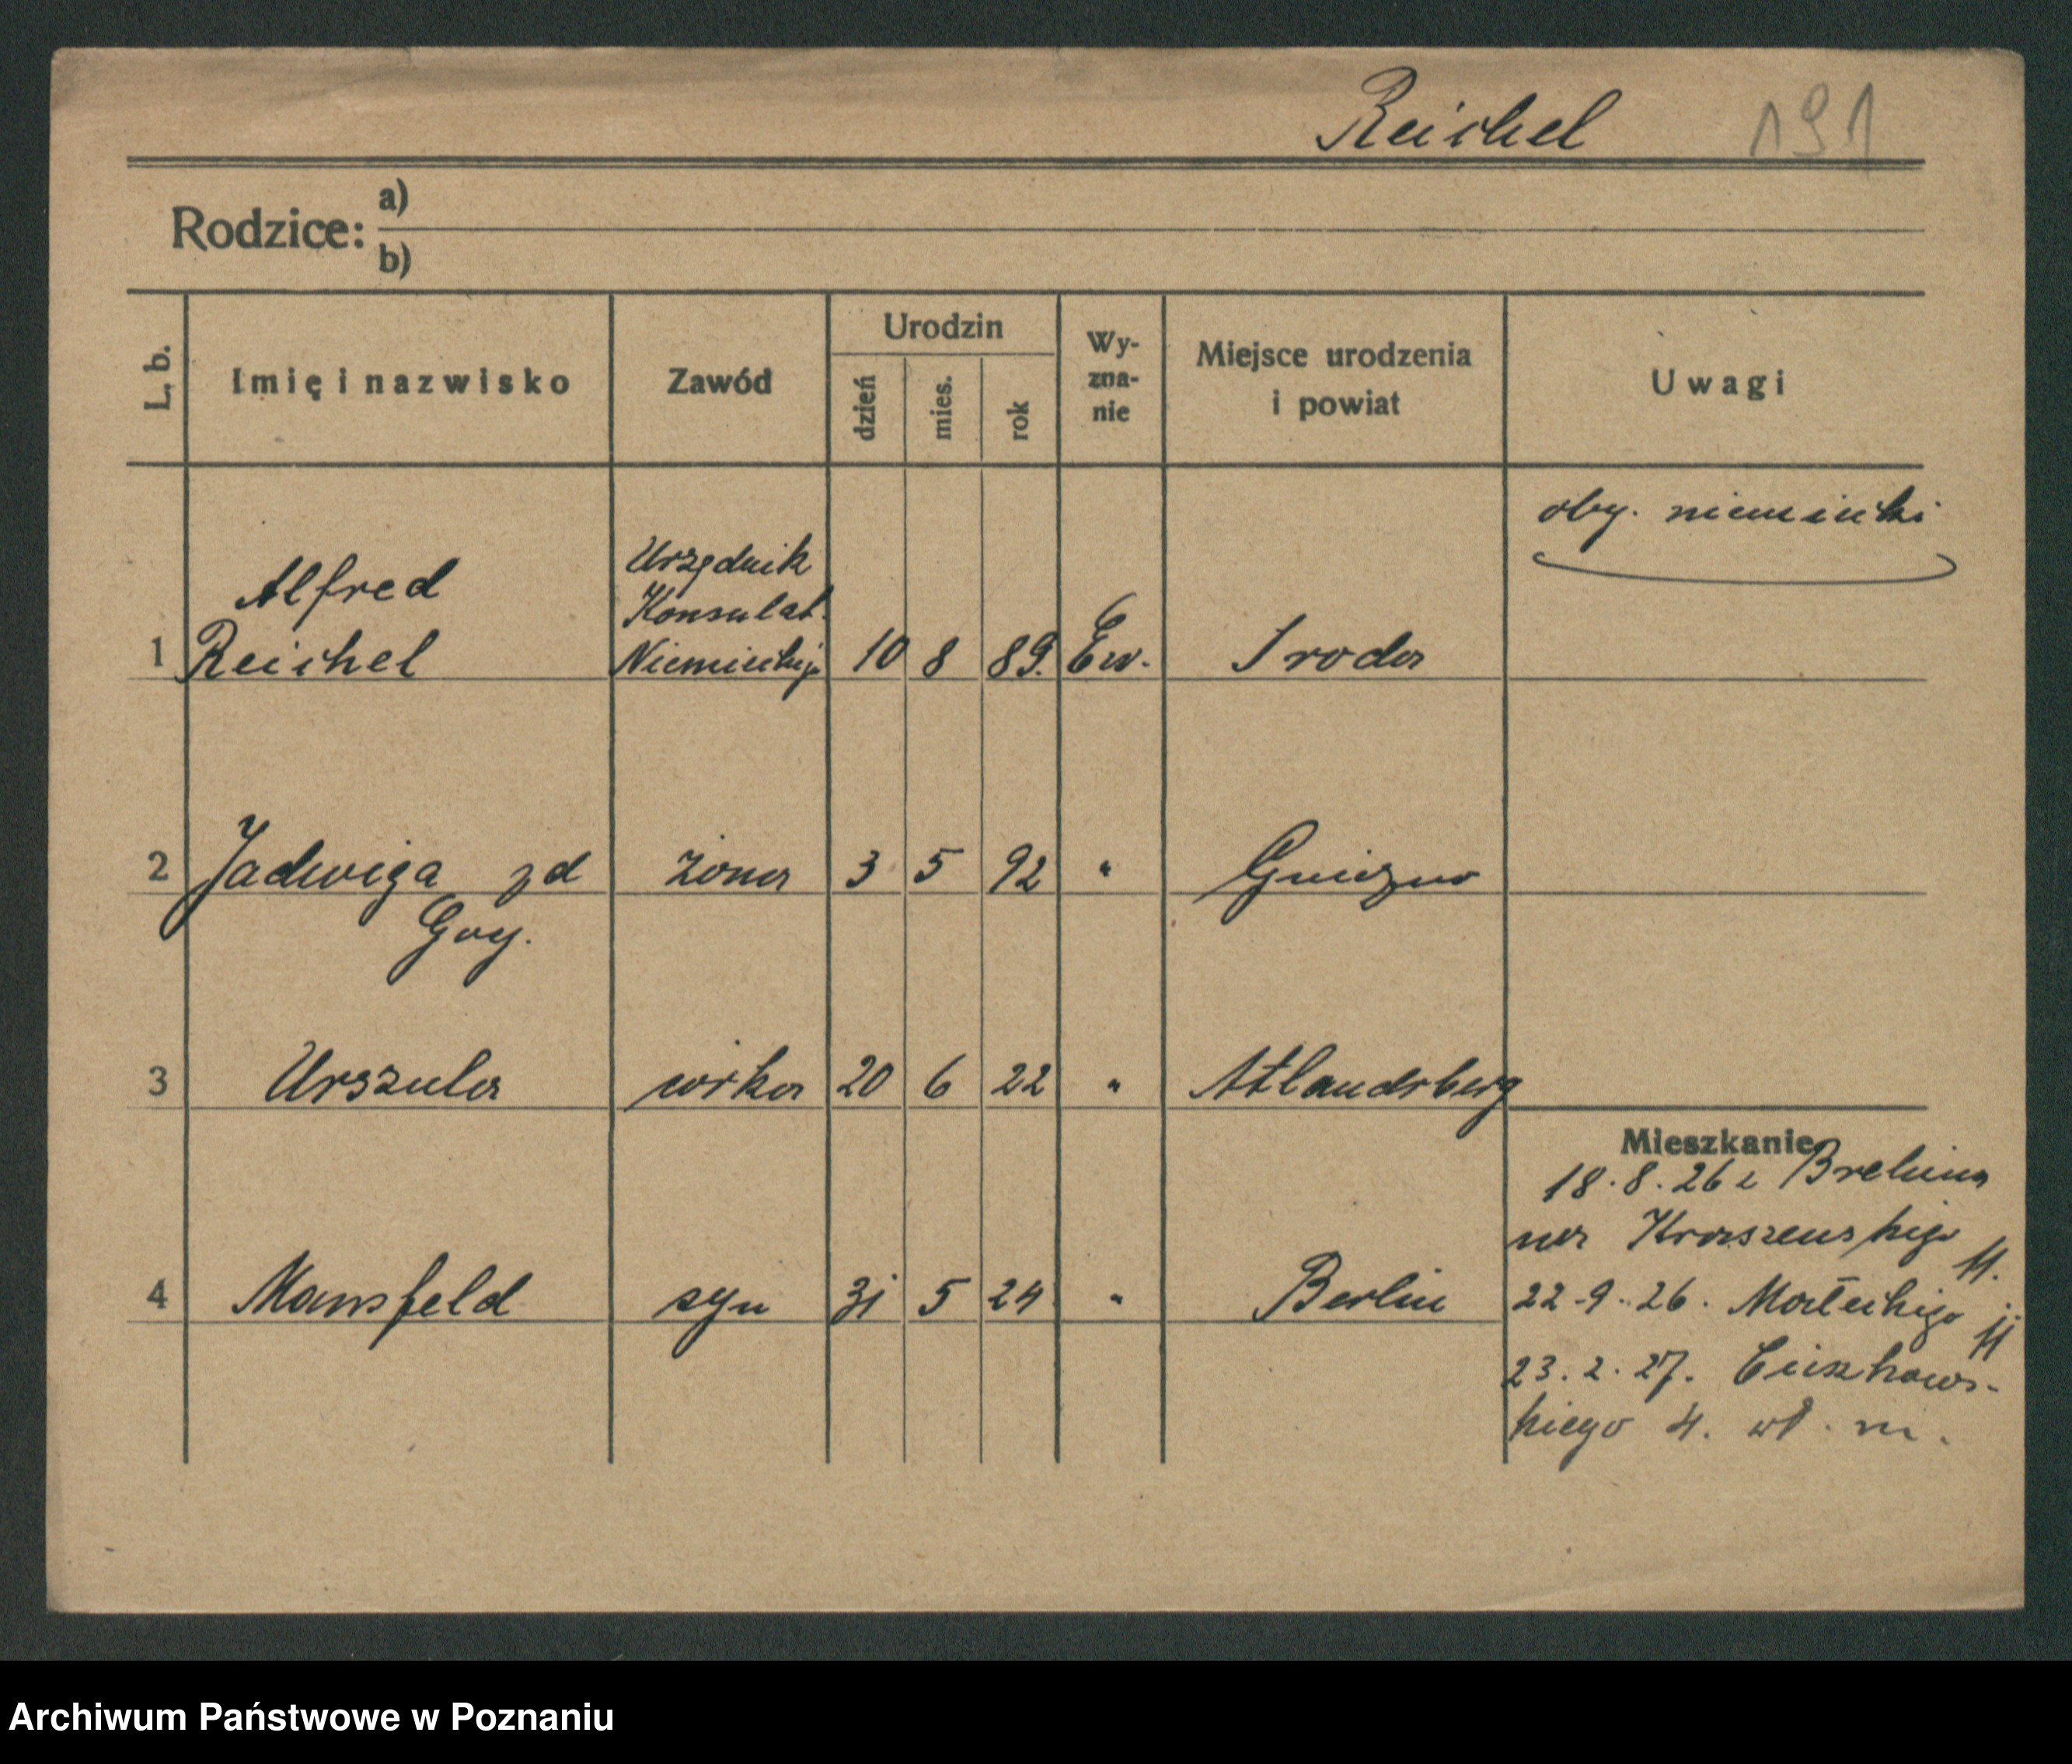 Reichel 191
Rodzice: a)
b)
L. b. Imię i nazwisko Zawód Urodzin dzień mies. rok Wy-zna-nie Miejsce urodzenia i powiat Uwagi
oby. niemiecki
Alfred Urzędnik
Konsulat.
1 Reichel Niemieckiego 10 8 89. Ew. Sroda
2 Jadwiga zd żona 3 5 92 " Gniezno
Goy.
3 Urszula córka 20 6 22 " Altlandsberg
Mieszkanie
18.8.26 z
na Kraszewskiego 11.
4 Mansfeld syn 31 5 24 " Berlin
22-9-26. Małeckiego 11
23.2.27. Cieszkows-
kiego 4. wł. m.
Archiwum Państwowe w Poznaniu